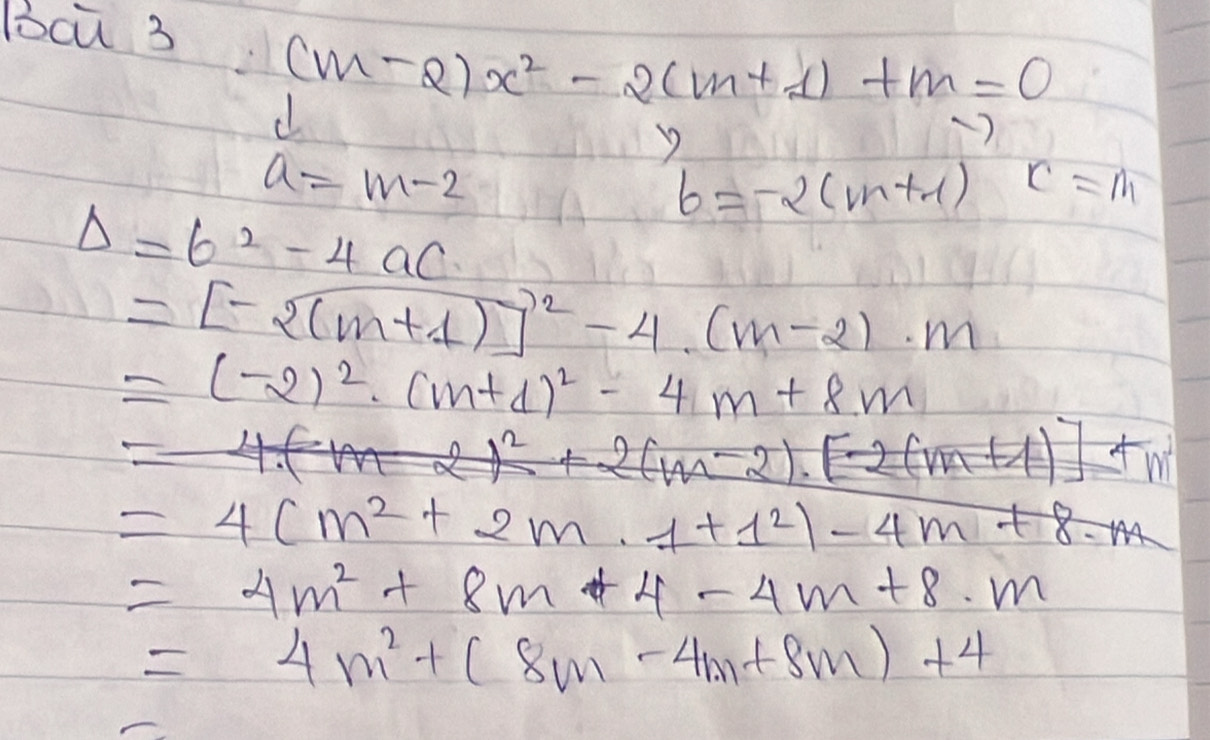 Bài 3 : (m-2)x² - 2(m+1) + m = 0
↓ ↘ →
a = m-2 b = -2(m+1) c = m
Δ = b² - 4 ac.
= [-2(m+1)]² - 4.(m-2).m
= (-2)². (m+1)² - 4m + 8m
= 4.(m-2)² + 2(m-2).[-2(m+1)] + m
= 4(m² + 2m . 1+1²) - 4m + 8.m
= 4m² + 8m + 4 - 4m + 8.m
= 4m² + (8m - 4m + 8m) + 4
=